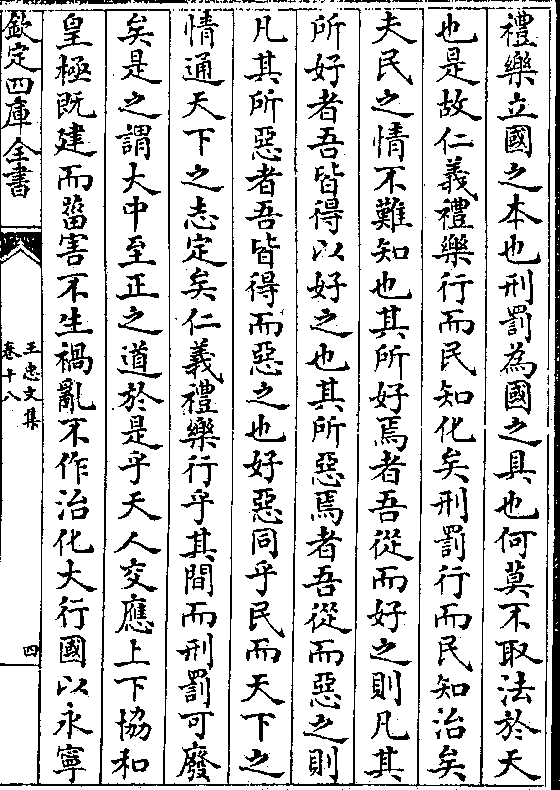 禮樂立國之本也刑罰為國之具也何莫不取法於天
也是故仁義禮樂行而民知化矣刑罰行而民知治矣
夫民之情不難知也其所好焉者吾從而好之則凡其
所好者吾皆得以好之也其所惡焉者吾從而惡之則
凡其所惡者吾皆得而惡之也好惡同乎民而天下之
情通天下之志定矣仁義禮樂行乎其間而刑罰可廢
矣是之謂大中至正之道於是乎天人交應上下協和
皇極既建而菑害不生禍亂不作治化大行國以永寧
欽定四庫全書
王忠文集
卷十八
四